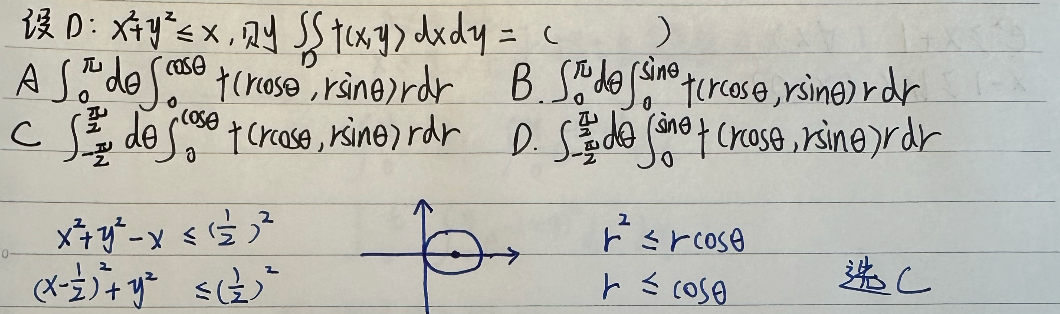 设 D: x²+y² ≤ x, 则 ∬_D f(x,y) dxdy = ( )
A ∫₀^π dθ ∫₀^cosθ f(rcosθ, rsinθ) r dr B. ∫₀^π dθ ∫₀^sinθ f(rcosθ, rsinθ) r dr
C ∫_{-π/2}^{π/2} dθ ∫₀^cosθ f(rcosθ, rsinθ) r dr D. ∫_{-π/2}^{π/2} dθ ∫₀^sinθ f(rcosθ, rsinθ) r dr
x²+y²-x ≤ (1/2)² r² ≤ rcosθ
(x-1/2)²+y² ≤ (1/2)² r ≤ cosθ 选 C